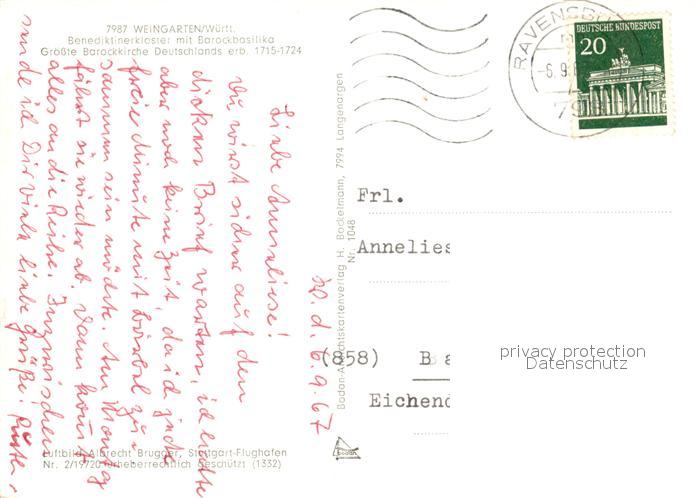 7987 WEINGARTEN/Württ.
Benediktinerkloster mit Barockbasilika
Größte Barockkirche Deutschlands erb. 1715-1724
W. d. 6.9.67
Liebe Annaliese!
Du wirst sicher auf den
dicken Brief warten, ich hatte
aber noch keine Zeit, da ich jede
freie Minute mit Bärbel zu-
sammen sein möchte. Am Montag
fährt sie wieder ab. Dann kommt
alles an die Reihe. Inzwischen
sende ich Dir viele liebe Grüße!
Luftbild Albrecht Brugger, Stuttgart-Flughafen
Nr. 2/19720 urheberrechtlich Geschützt (1332)
Bodan-Ansichtskartenverlag H. Bockelmann, 7994 Langenargen
Nr. 1048
bodan
RAVENSBU
-6.9.
79
DEUTSCHE BUNDESPOST
20
Frl.
Annelies
(858) Ba
Eichend
privacy protection
Datenschutz